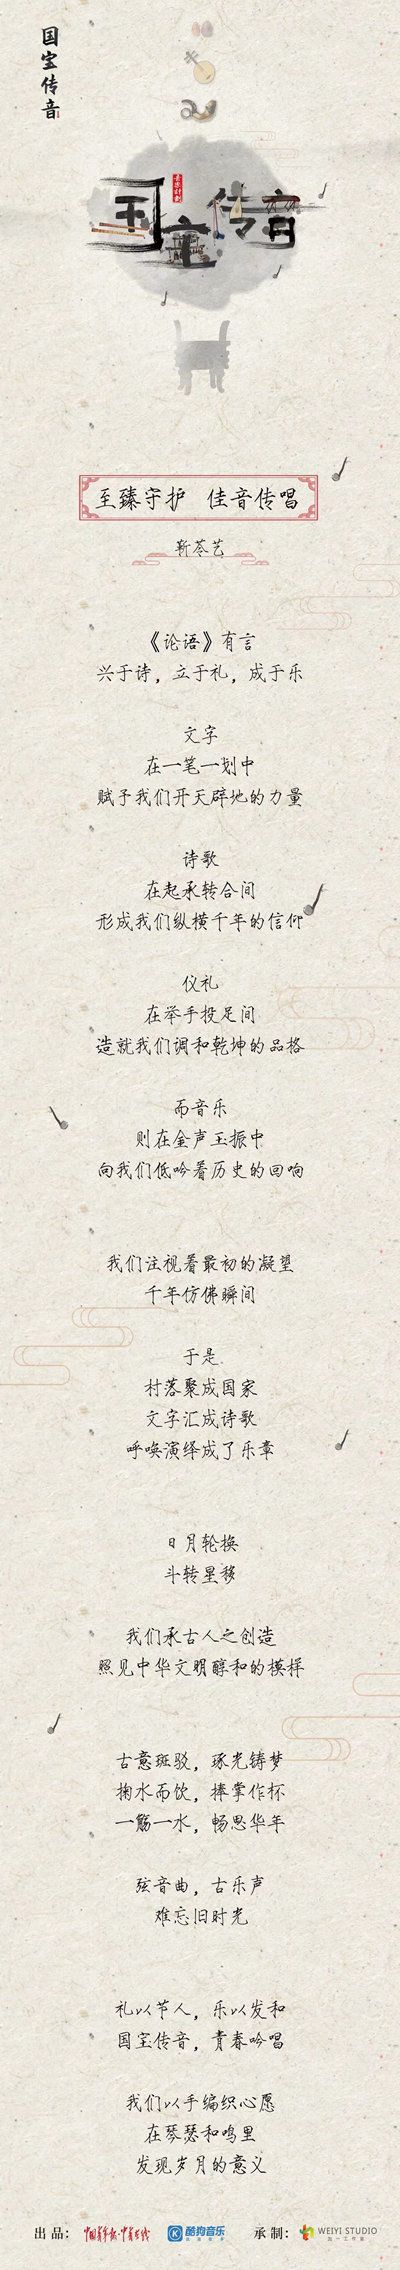 国宝传音
音乐计划
国宝传音
至臻守护 佳音传唱
靳苓艺
《论语》有言
兴于诗，立于礼，成于乐
文字
在一笔一划中
赋予我们开天辟地的力量
诗歌
在起承转合间
形成我们纵横千年的信仰
仪礼
在举手投足间
造就我们调和乾坤的品格
而音乐
则在金声玉振中
向我们低吟着历史的回响
我们注视着最初的凝望
千年仿佛瞬间
于是
村落聚成国家
文字汇成诗歌
呼唤演绎成了乐章
日月轮换
斗转星移
我们承古人之创造
照见中华文明醇和的模样
古意斑驳，琢光铸梦
掬水而饮，捧掌作杯
一觞一水，畅思华年
弦音曲，古乐声
难忘旧时光
礼以节人，乐以发和
国宝传音，青春吟唱
我们以手编织心愿
在琴瑟和鸣里
发现岁月的意义
出品： 中国青年报·中青在线 酷狗音乐 承制： WEIYI STUDIO